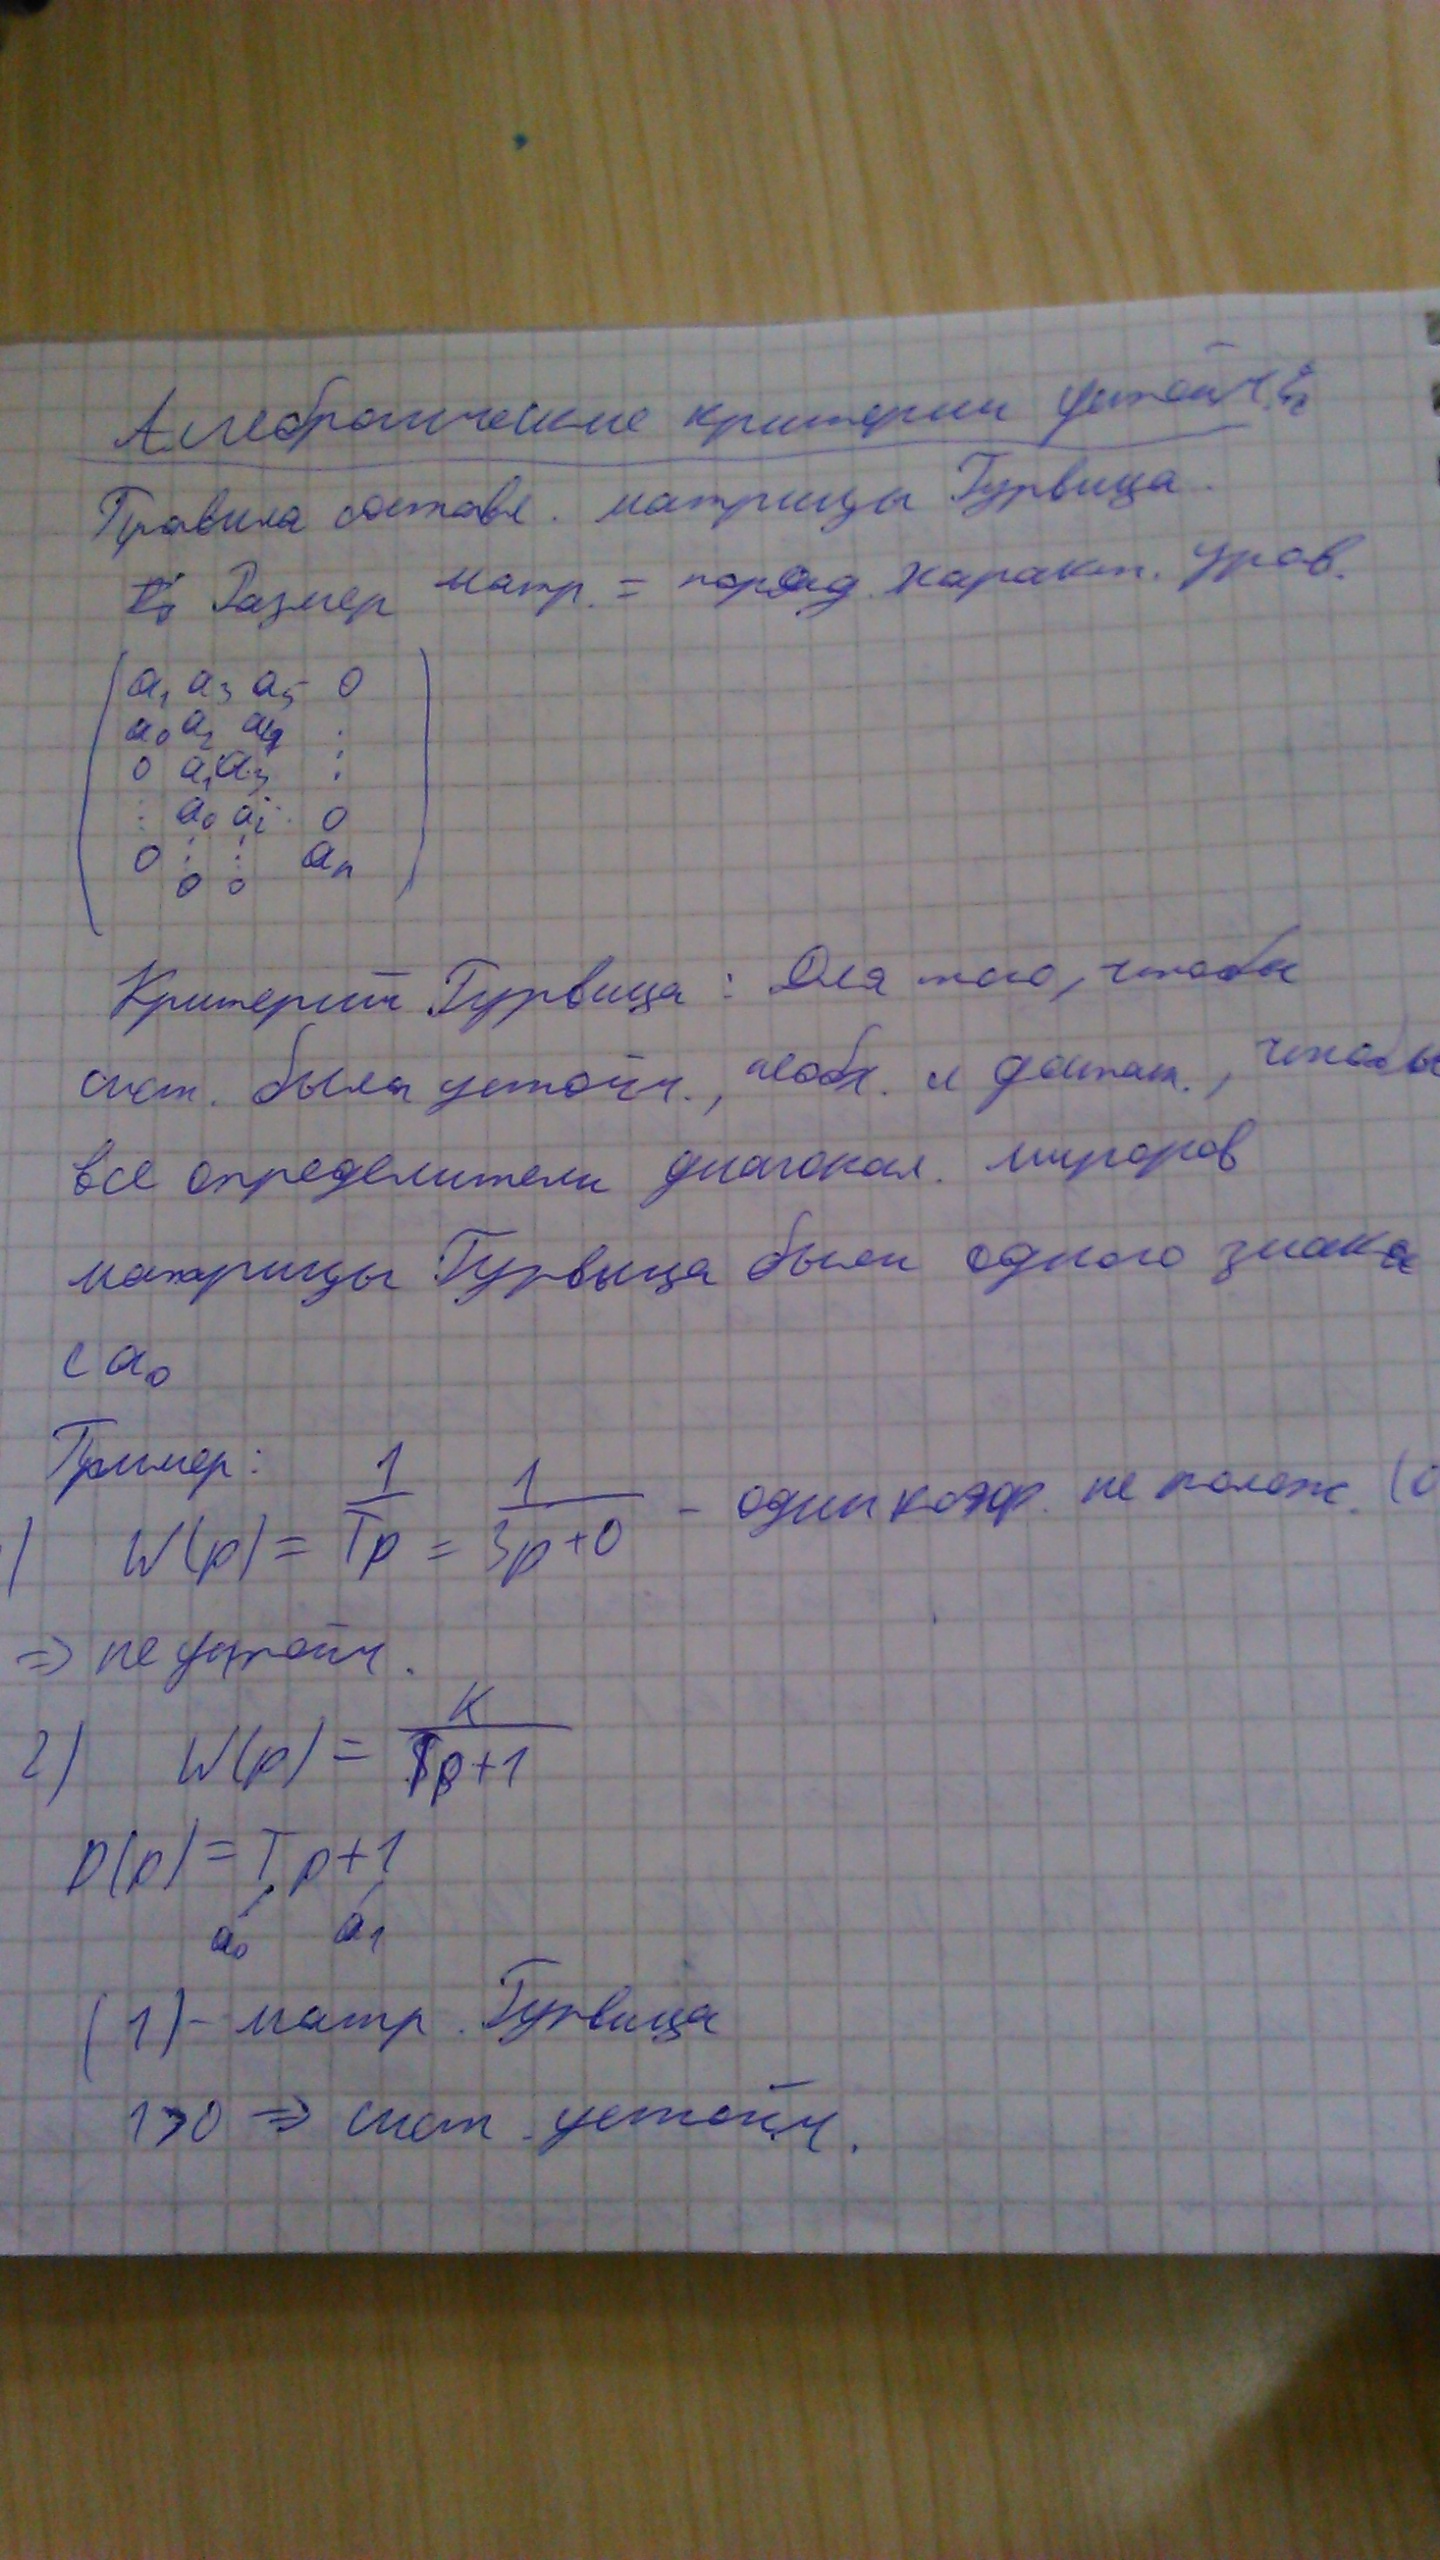 Алгебраические критерии устойч.
Правила составл. матрицы Гурвица.
Размер матр. = поряд. характ. урав.
a₁ a₃ a₅ 0
a₀ a₂ a₄ :
0 a₁ a₃ :
: a₀ a₂ . 0
0 : : aₙ
0 0
Критерий Гурвица: Для того, чтобы
сист. была устойч., необх. и достат., чтобы
все определители диагонал. миноров
матрицы Гурвица были одного знака
с a₀
Пример:
) W(p) = 1/Tp = 1/3p+0 – один коэф. не полож. (0
⇒ не устойч.
2) W(p) = K/Tp+1
D(p) = Tp+1
a₀ a₁
(1) – матр. Гурвица
1>0 ⇒ сист. устойч.